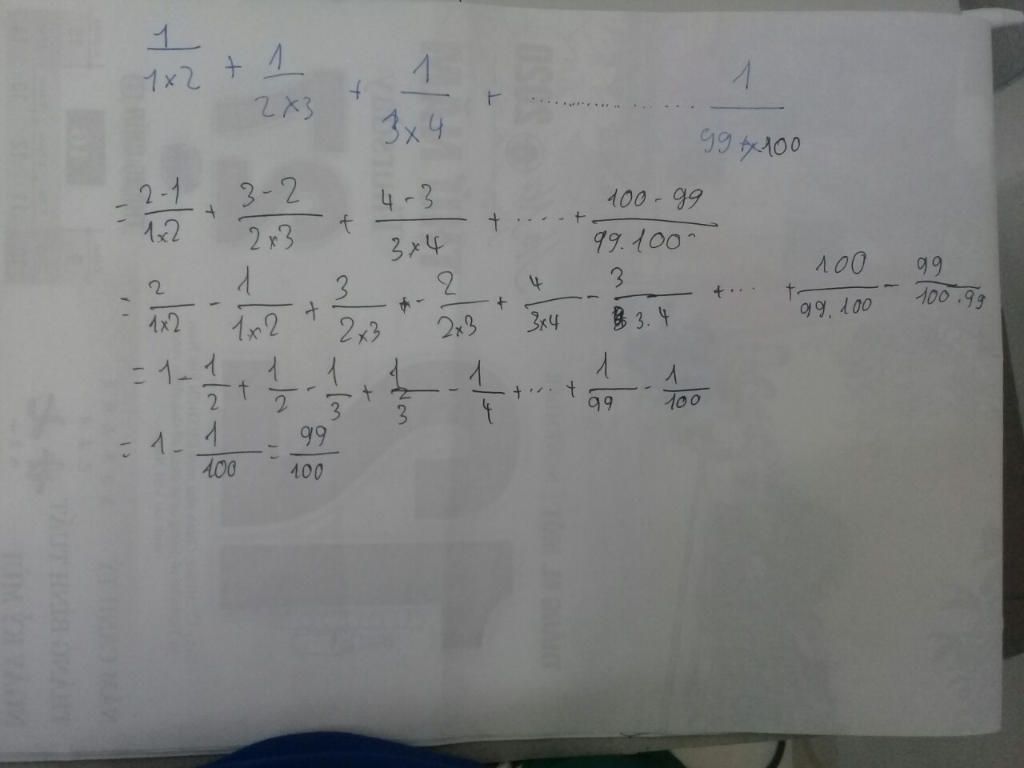 1/(1×2) + 1/(2×3) + 1/(3×4) + ................ 1/(99×100)
= (2-1)/(1×2) + (3-2)/(2×3) + (4-3)/(3×4) + ..... + (100-99)/(99.100)
= 2/(1×2) - 1/(1×2) + 3/(2×3) - 2/(2×3) + 4/(3×4) - 3/(3.4) + ... + 100/(99.100) - 99/(100.99)
= 1 - 1/2 + 1/2 - 1/3 + 1/3 - 1/4 + ... + 1/99 - 1/100
= 1 - 1/100 = 99/100